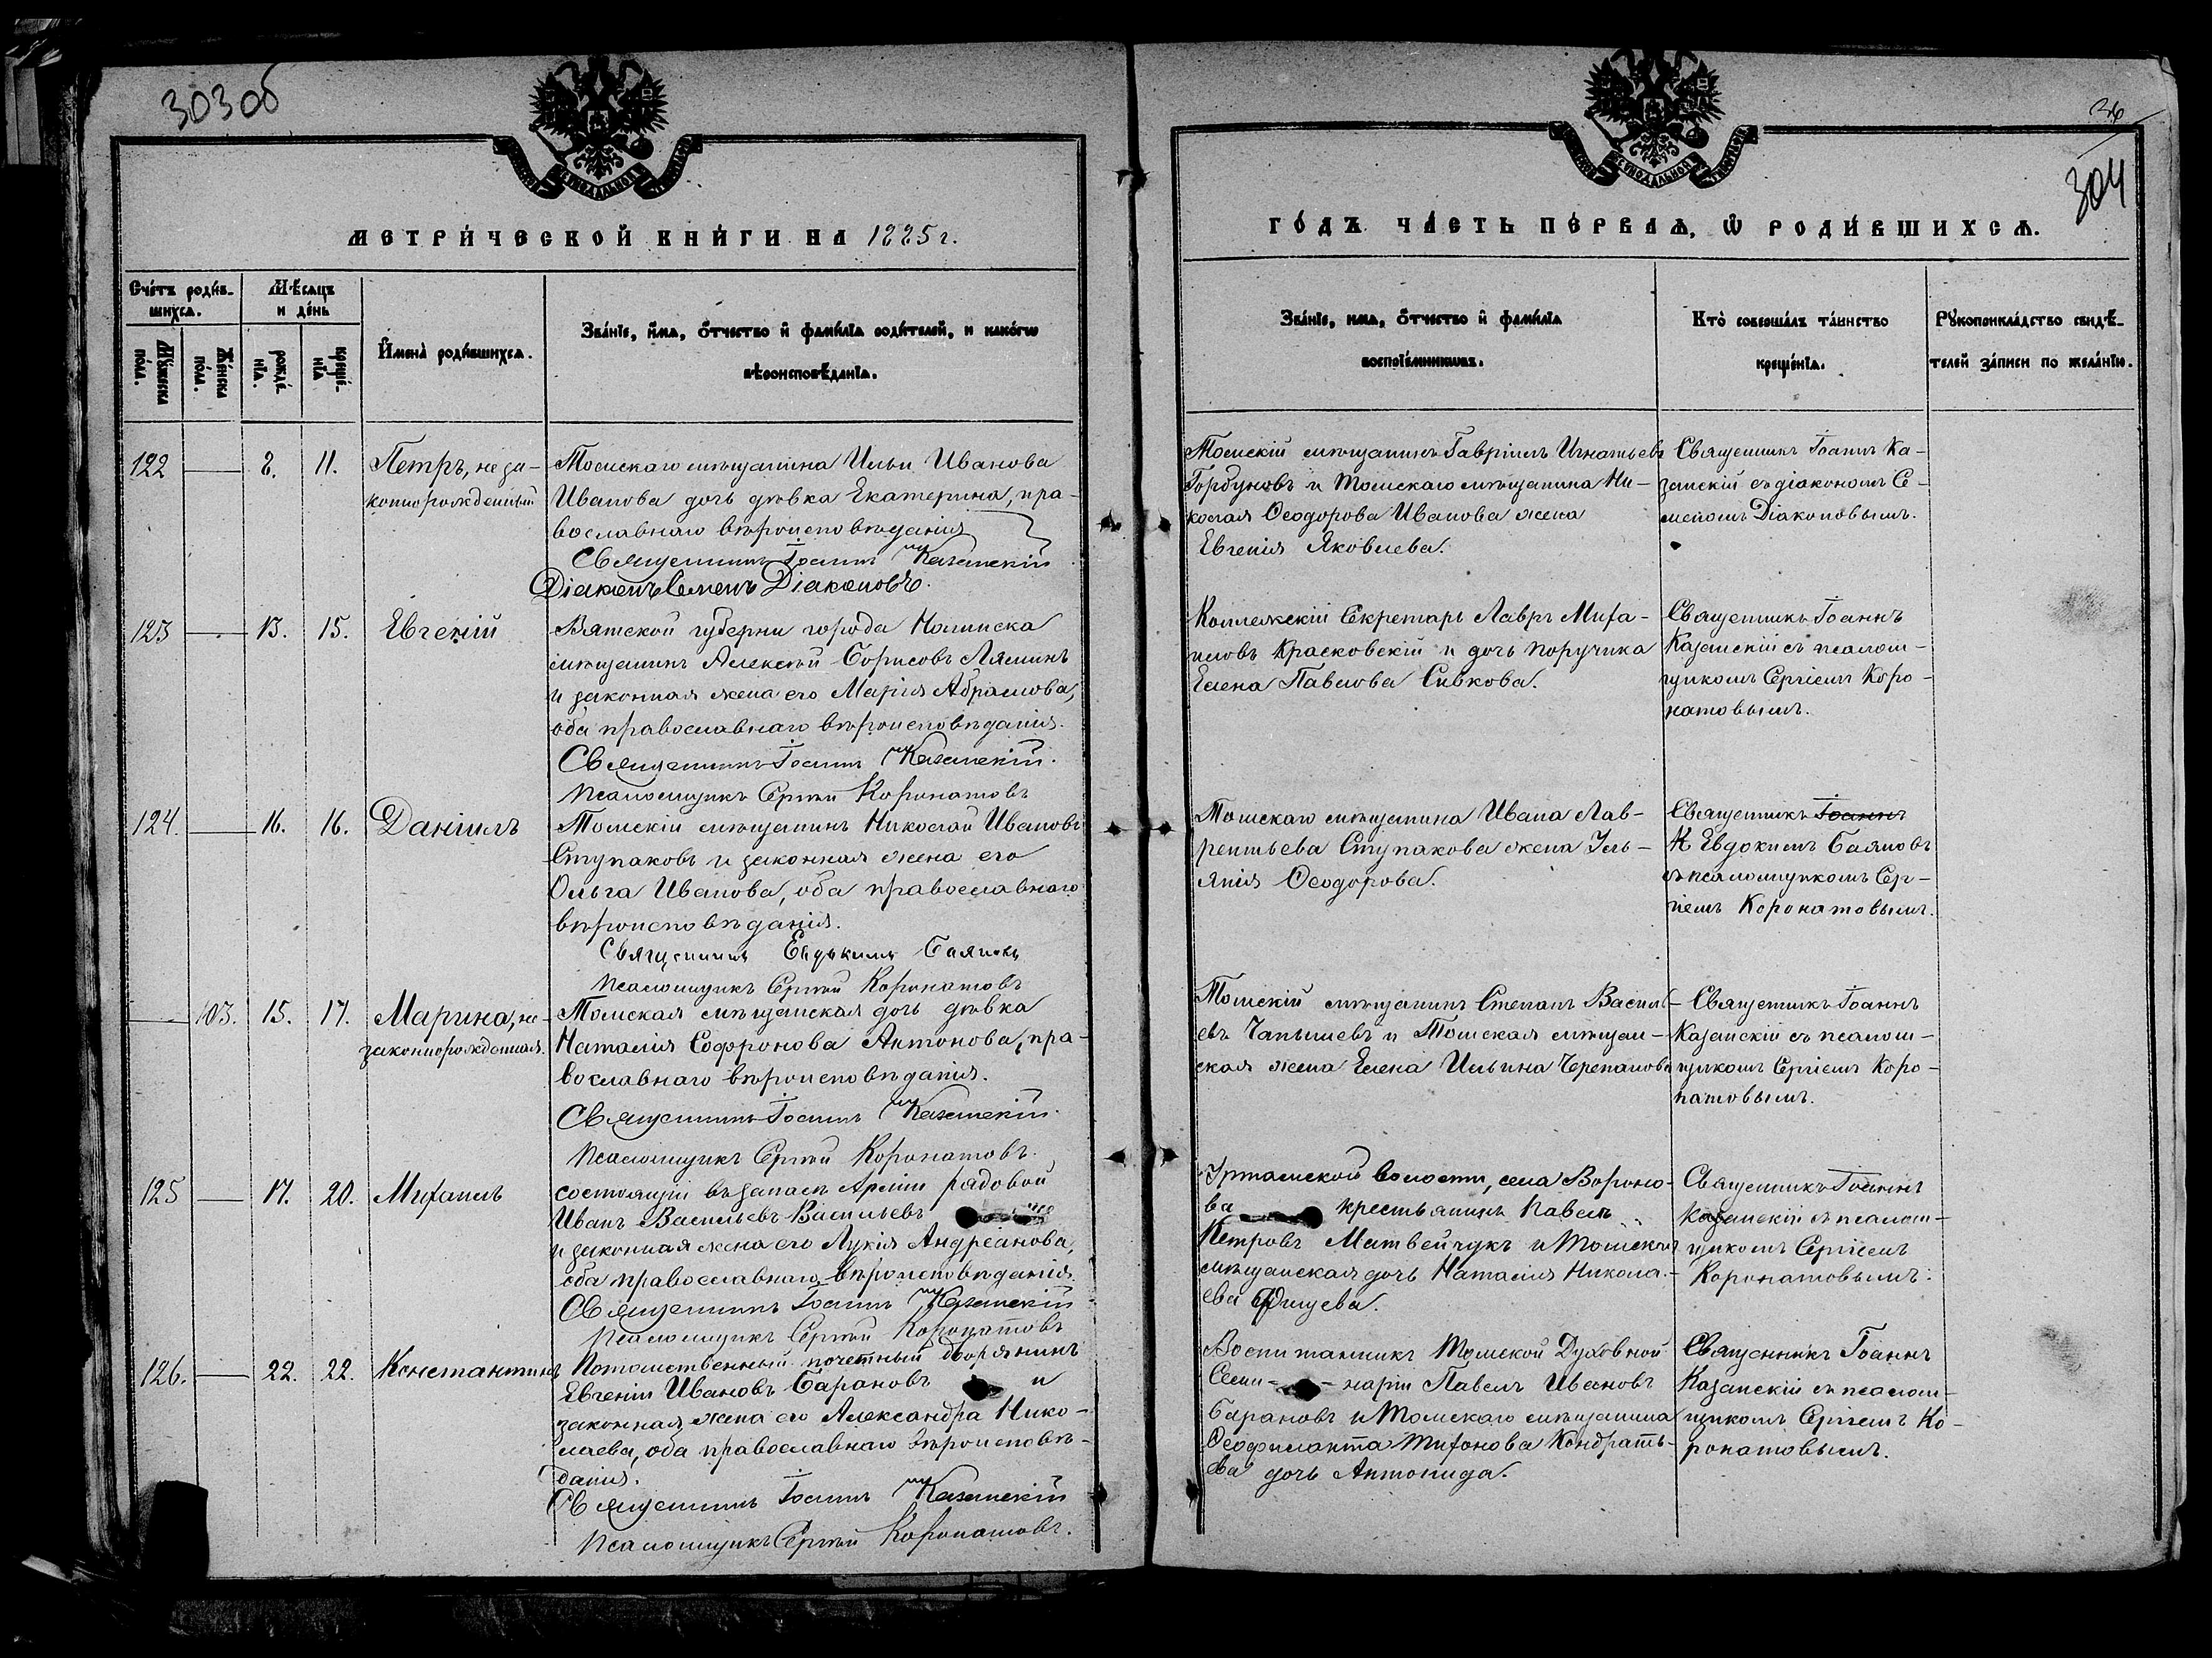 303об
МЕТРИЧЕСКОЙ КНИГИ НА 1885 г.
Счетъ родив-
шихся.
Мѣсяцъ
и день
Мужеска
пола.
Женска
пола.
рожде-
нія.
креще-
нія
Имена родившихся.
Званіе, имя, отчество и фамилія родителей, и какого
вѣроисповѣданія.
122 8. 11. Петръ, неза-
коннорожденный
Томскаго мѣщанина Ильи Иванова
Иванова дочь дѣвка Екатерина, пра-
вославнаго вѣроисповѣданія
Священникъ Іоаннъ Казанскій
Діаконъ Семенъ Діаконовъ.
123 13. 15. Евгеній
Вятской губерни города Нолинска
мѣщанинъ Алексѣй Борисовъ Ляминъ
и законная жена его Марія Абрамова,
оба православнаго вѣроисповѣданія.
Священникъ Іоаннъ Казанскій.
Псаломщикъ Сергѣй Коронатовъ
124. 16. 16. Даніилъ
Томскій мѣщанинъ Николай Ивановъ
Ступаковъ и законная жена его
Ольга Иванова, оба православнаго
вѣроисповѣданія.
Священникъ Евдокимъ Баяновъ
Псаломщикъ Сергѣй Коронатовъ
103. 15. 17. Марина, не-
законнорожденная.
Томская мѣщанская дочь дѣвка
Наталія Софронова Антонова, пра-
вославнаго вѣроисповѣданія.
Священникъ Іоаннъ Казанскій.
Псаломщикъ Сергѣй Коронатовъ.
125 17. 20. Михаилъ
состоящій въ запасѣ Арміи рядовой
Иванъ Васильевъ Васильевъ
и законная жена его Лукія Андреанова,
оба православнаго вѣроисповѣданія.
Священникъ Іоаннъ Казанскій
Псаломщикъ Сергѣй Коронатовъ
126. 22. 22. Константинъ
Потомственный почетный дворянинъ
Евгеній Ивановъ Барановъ и
законная жена его Александра Нико-
лаева, оба православнаго вѣроисповѣ-
данія.
Священникъ Іоаннъ Казанскій
Псаломщикъ Сергѣй Коронатовъ.
36
304
ГОДЪ ЧАСТЬ ПЕРВАЯ, Ѡ РОДИВШИХСЯ.
Званіе, имя, отчество и фамилія
воспріемниковъ.
Кто совершалъ таинство
крещенія.
Рукоприкладство свидѣ-
телей записи по желанію.
Томскій мѣщанинъ Гавріилъ Игнатьевъ
Горбуновъ и Томскаго мѣщанина Ни-
колая Ѳеодорова Иванова жена
Евгенія Яковлева.
Священникъ Іоаннъ Ка-
занскій съ діакономъ Се-
меномъ Діаконовымъ.
Коллежскій Секретарь Лавръ Миха-
иловъ Красковскій и дочь поручика
Елена Павлова Сивкова.
Священникъ Іоаннъ
Казанскій съ псалом-
щикомъ Сергіемъ Коро-
натовымъ.
Томскаго мѣщанина Ивана Лав-
рентьева Ступакова жена Уль-
янія Ѳеодорова.
Священникъ Іоаннъ
К Евдокимъ Баяновъ
съ псаломщикомъ Сер-
гіемъ Коронатовымъ.
Томскій мѣщанинъ Степанъ Василь-
евъ Чапышевъ и Томская мѣщан-
ская жена Елена Ильина Черепанова
Священникъ Іоаннъ
Казанскій съ псалом-
щикомъ Сергіемъ Коро-
натовымъ.
Уртамской волости, села Вороно-
ва крестьянинъ Павелъ
Петровъ Матвейчукъ и Томская
мѣщанская дочь Наталія Никола-
ева
Священникъ Іоаннъ
Казанскій съ псалом-
щикомъ Сергіемъ
Коронатовымъ.
Воспитанникъ Томской Духовной
Семи- наріи Павелъ Ивановъ
Барановъ и Томскаго мѣщанина
Ѳеофилакта Тихонова Кондрать-
ева дочь Антонида.
Священникъ Іоаннъ
Казанскій съ псалом-
щикомъ Сергіемъ Ко-
ронатовымъ.